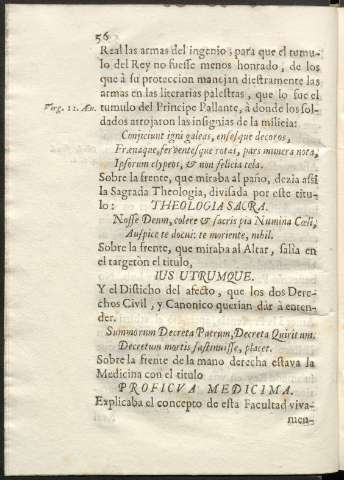 56
Real las armas del ingenio; para que el tumu-
lo del Rey no fuesse menos honrado, de los
que à su proteccion manejan diestramente las
armas en las literarias palestras, que lo fue el
Virg. 11. Æn.
tumulo del Principe Pallante, à donde los sol-
dados arrojaron las insignias de la milicia:
Conijciunt igni galeas, ensesque decoros,
Frænaque, ferventesque rotas, pars munera nota,
Ipsorum clypeos, & non felicia tela.
Sobre la frente, que miraba al paño, dezia assi
la Sagrada Theologia, divisada por este titu-
lo: THEOLOGIA SACRA.
Nosse Deum, colere & sacris pia Numina Cœli,
Auspice te docui: te moriente, nihil.
Sobre la frente, que miraba al Altar, salia en
el targetòn el titulo,
IUS UTRUMQUE.
Y el Disticho del afecto, que los dos Dere-
chos Civil, y Canonico querian dàr à enten-
der.
Summorum Decreta Patrum, Decreta Quiritum.
Decretum mortis sustinuisse, placet.
Sobre la frente de la mano derecha estava la
Medicina con el titulo
PROFICVA MEDICIMA.
Explicaba el concepto de esta Facultad viva-
men-